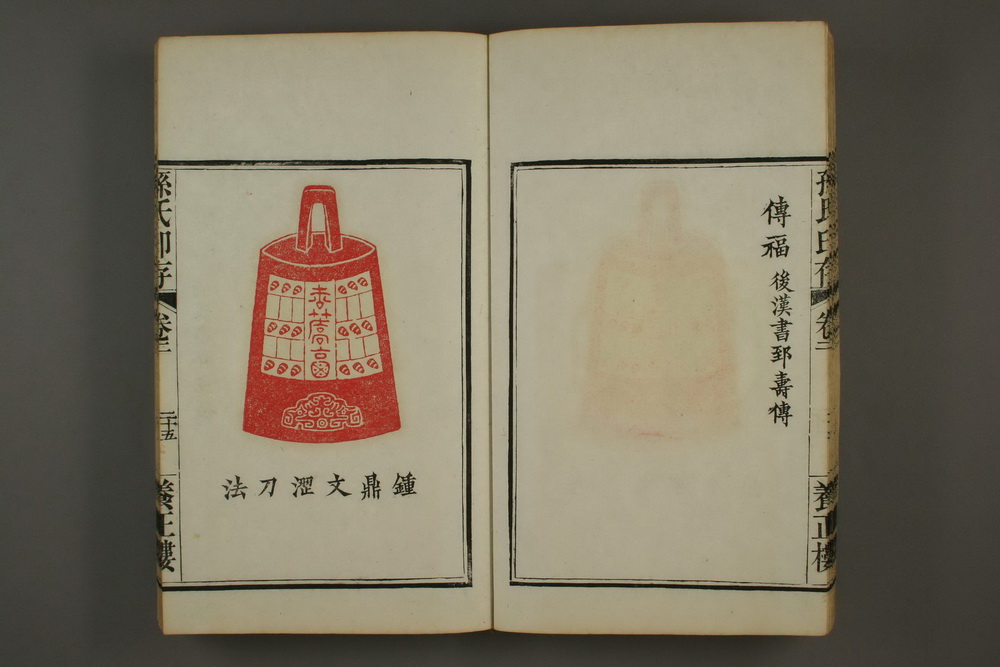 孫氏印存
卷三
養正樓
傳福 後漢書郅壽傳
鍾鼎文澀刀法
孫氏印存
卷三
二十五
養正樓